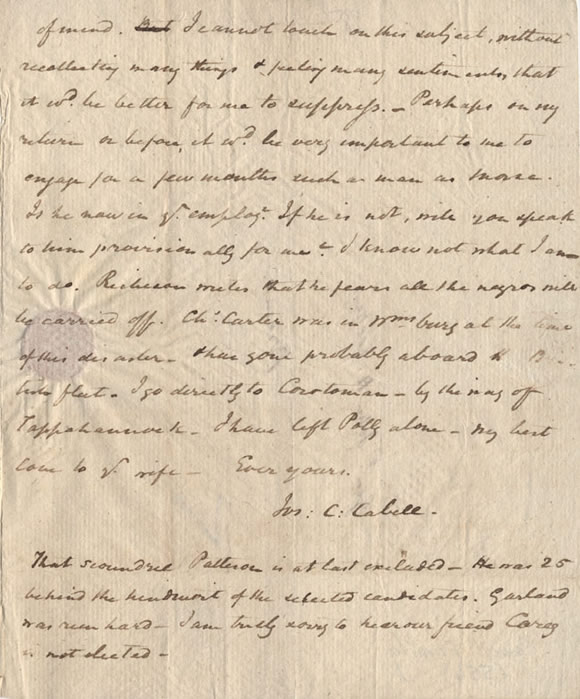 of mind. But I cannot touch on this subject, without
recollecting many things & feeling many sentiments, that
it wd. be better for me to suppress. – Perhaps on my
return or before, it wd. be very important to me to
engage for a few months such a man as Morse.
Is he now in yr. employt. If he is not, will you speak
to him provisionally for me? I know not what I am
to do. Richeson writes that he fears all the negros will
be carried off. Chs. Carter was in Wmsburg at the time
of this disaster – & has gone probably aboard the Bri-
tish fleet. I go directly to Corotoman – by the way of
Tappahannock. I have left Polly alone – my best
love to yr. wife – Ever yours.
Jos: C: Cabell.
That scoundrel Patteson is at last excluded – He was 25
behind the hindmost of the selected candidates. Garland
was run hard – I am truly sorry to hear our friend Carey
is not elected –